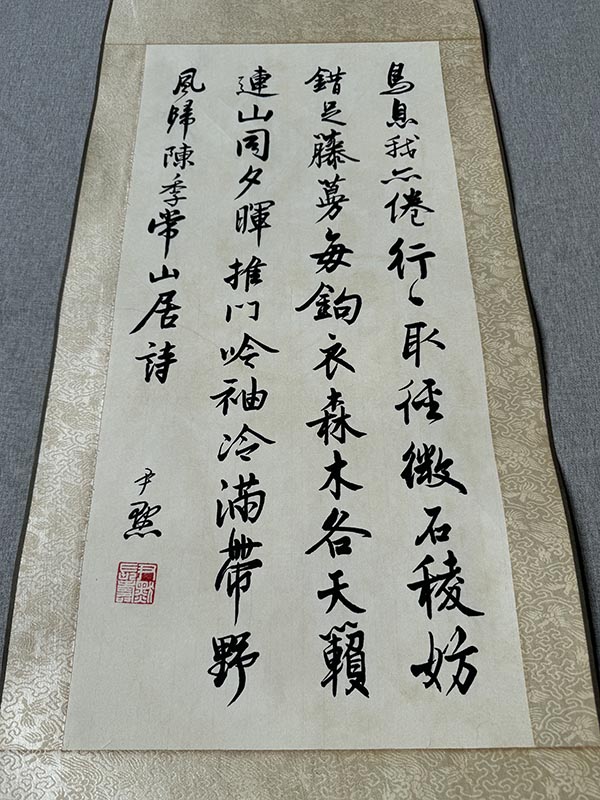 鳥息我亦倦行〻取徑微石稜妨
錯足藤蔓每鉤衣森木各天籟
連山同夕暉推门吟袖冷滿帶野
風歸陳季常山居詩
尹默